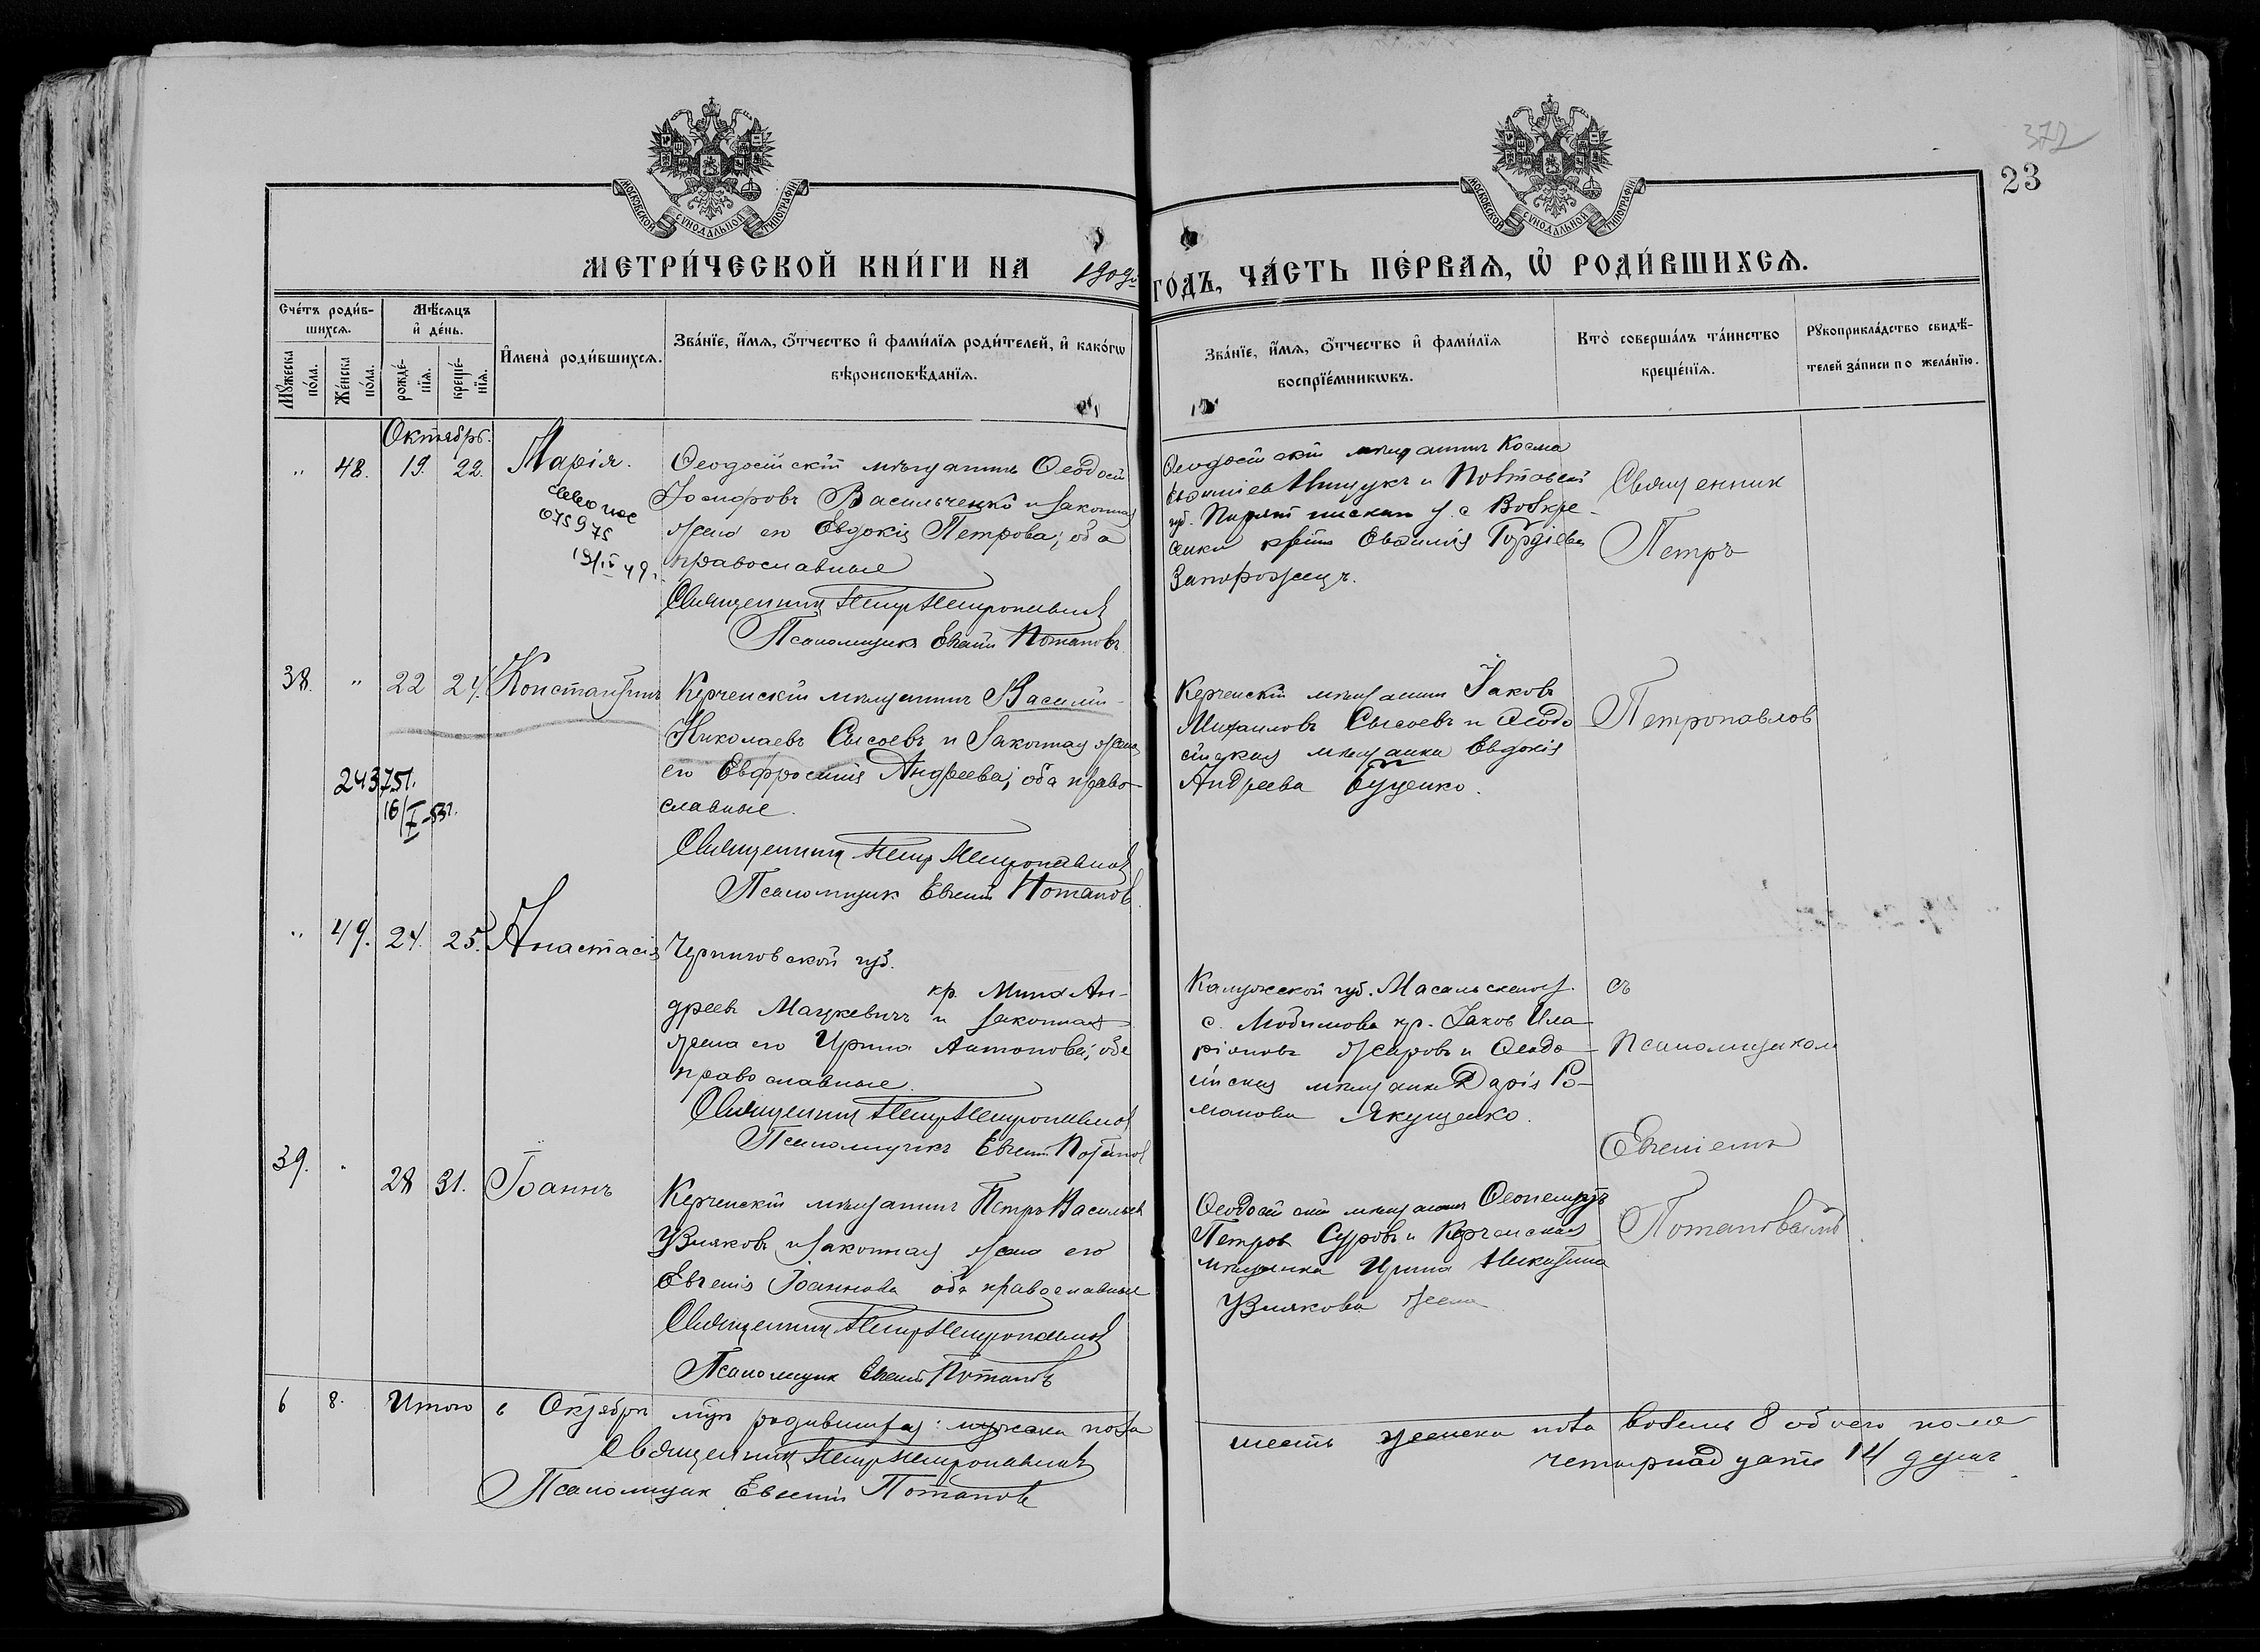 372
23
МОСКОВСКОЙ СѴНОДАЛЬНОЙ ТИПОГРАФІИ
МОСКОВСКОЙ СѴНОДАЛЬНОЙ ТИПОГРАФІИ
МЕТРИ́ЧЕСКОЙ КНИ́ГИ НА 1909й
ГО́ДЪ, ЧА́СТЬ ПЕ́РВАѦ, Ѡ҆ РОДИ́ВШИХСѦ.
Сче́тъ роди́в-
шихсѧ.
Мѣ́сѧцъ
и҆ де́нь.
Мꙋ́жеска
по́ла.
Же́нска
по́ла.
рожде́-
нїѧ.
креще́-
нїѧ.
И҆мена̀ роди́вшихсѧ.
Зва́нїе, и҆́мѧ, ѻ҆́тчество и҆ фами́лїѧ роди́телей, и҆ како́гѡ
вѣроисповѣ́данїѧ.
Зва́нїе, и҆́мѧ, ѻ҆́тчество и҆ фами́лїѧ
воспрїе́мникѡвъ.
Кто̀ соверша́лъ та́инство
креще́нїѧ.
Рꙋкоприкла́дство свидѣ́-
телей за́писи по жела́нїю.
Октябрь.
" 48. 19. 22. Марія.
075975
Ѳеодосійскій мѣщанинъ Ѳеодосій
Васильченко и законная
жена его Евдокія Петрова; оба
православные
Священникъ Петръ Петропавловъ
Псаломщикъ Евгеній Потаповъ
Ѳеодосійскій мѣщанинъ Косма
и Полтавской
губ. у. с. Воскре-
сенки Евфимія Гордіева
Запорожецъ.
Священник
Петръ
38. " 22 24. Константинъ
243751.
16/I-51.
Керченскій мѣщанинъ Василій
Николаевъ Сысоевъ и законная жена
его Евфросинія Андреева; оба право-
славные.
Священникъ Петръ Петропавловъ
Псаломщик Евгеній Потаповъ.
Керченскій мѣщанинъ Іаковъ
Михаиловъ Сысоевъ и Ѳеодо
сійская мѣщанка Евдокія
Андреева Буценко.
Петропавлов
" 49. 24. 25. Анастасія
Черниговской губ.
кр. Миха Ан-
дреевъ Мацкевичъ и законная
жена его Ирина Антонова; оба
православные.
Священникъ Петръ Петропавловъ
Псаломщикъ Евгеній Потапов
Калужской губ. Масальскаго у.
с. кр. Іаковъ Ила
ріоновъ Жаровъ и Ѳеодо
сійская мѣщанка Дарія Ро-
манова Якущенко.
съ
Псаломщиком
Евгеніемъ
Потаповымъ.
39. " 28 31. Іоаннъ
Керченскій мѣщанинъ Петръ Васильев
Узляковъ и законная жена его
Евгенія Іоаннова оба православные
Священникъ Петръ Петропавловъ
Псаломщик Евгеній Потаповъ
Ѳеодосійскій мѣщанинъ Ѳеопемптъ
Петров Суровъ и Керченская
мѣщанка Ирина Никитина
Узлякова жена
6 8. Итого в Октябрѣ мцѣ родившихся: мужска пола
шесть женска пола восемь 8 обоего пола
четырнадцать 14 душъ
Священникъ Петръ Петропавловъ
Псаломщик Евгеній Потаповъ